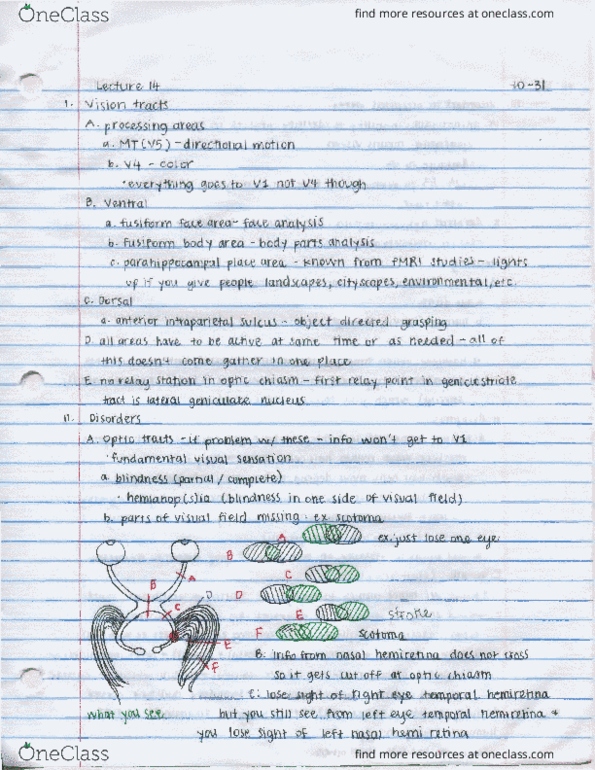 OneClass
find more resources at oneclass.com
Lecture 14
10-31
I. Vision tracts
A. processing areas
a. MT (V5) - directional motion
b. V4 - color
· everything goes to V1 not V4 though
B. Ventral
a. fusiform face area - face analysis
b. fusiform body area - body parts analysis
c. parahippocampal place area - known from fMRI studies - lights
up if you give people landscapes, cityscapes, environmental, etc.
C. Dorsal
a. anterior intraparietal sulcus - object directed grasping
D. all areas have to be active at same time or as needed - all of
this doesn't come gather in one place
E. no relay station in optic chiasm - first relay point in geniculostriate
tract is lateral geniculate nucleus
II. Disorders
A. Optic tracts - if problem w/ these - info won't get to V1
· fundamental visual sensation
a. blindness (partial / complete)
· hemianop(s)ia (blindness in one side of visual field)
b. parts of visual field missing · ex scotoma
A
ex. just lose one eye
B
C
D
E
stroke
F
scotoma
B
A
C
D
E
F
B: info from nasal hemiretina does not cross
so it gets cut off at optic chiasm
C: lose sight of right eye temporal hemiretina
what you see
but you still see from left eye temporal hemiretina +
you lose sight of left nasal hemi retina
OneClass
find more resources at oneclass.com